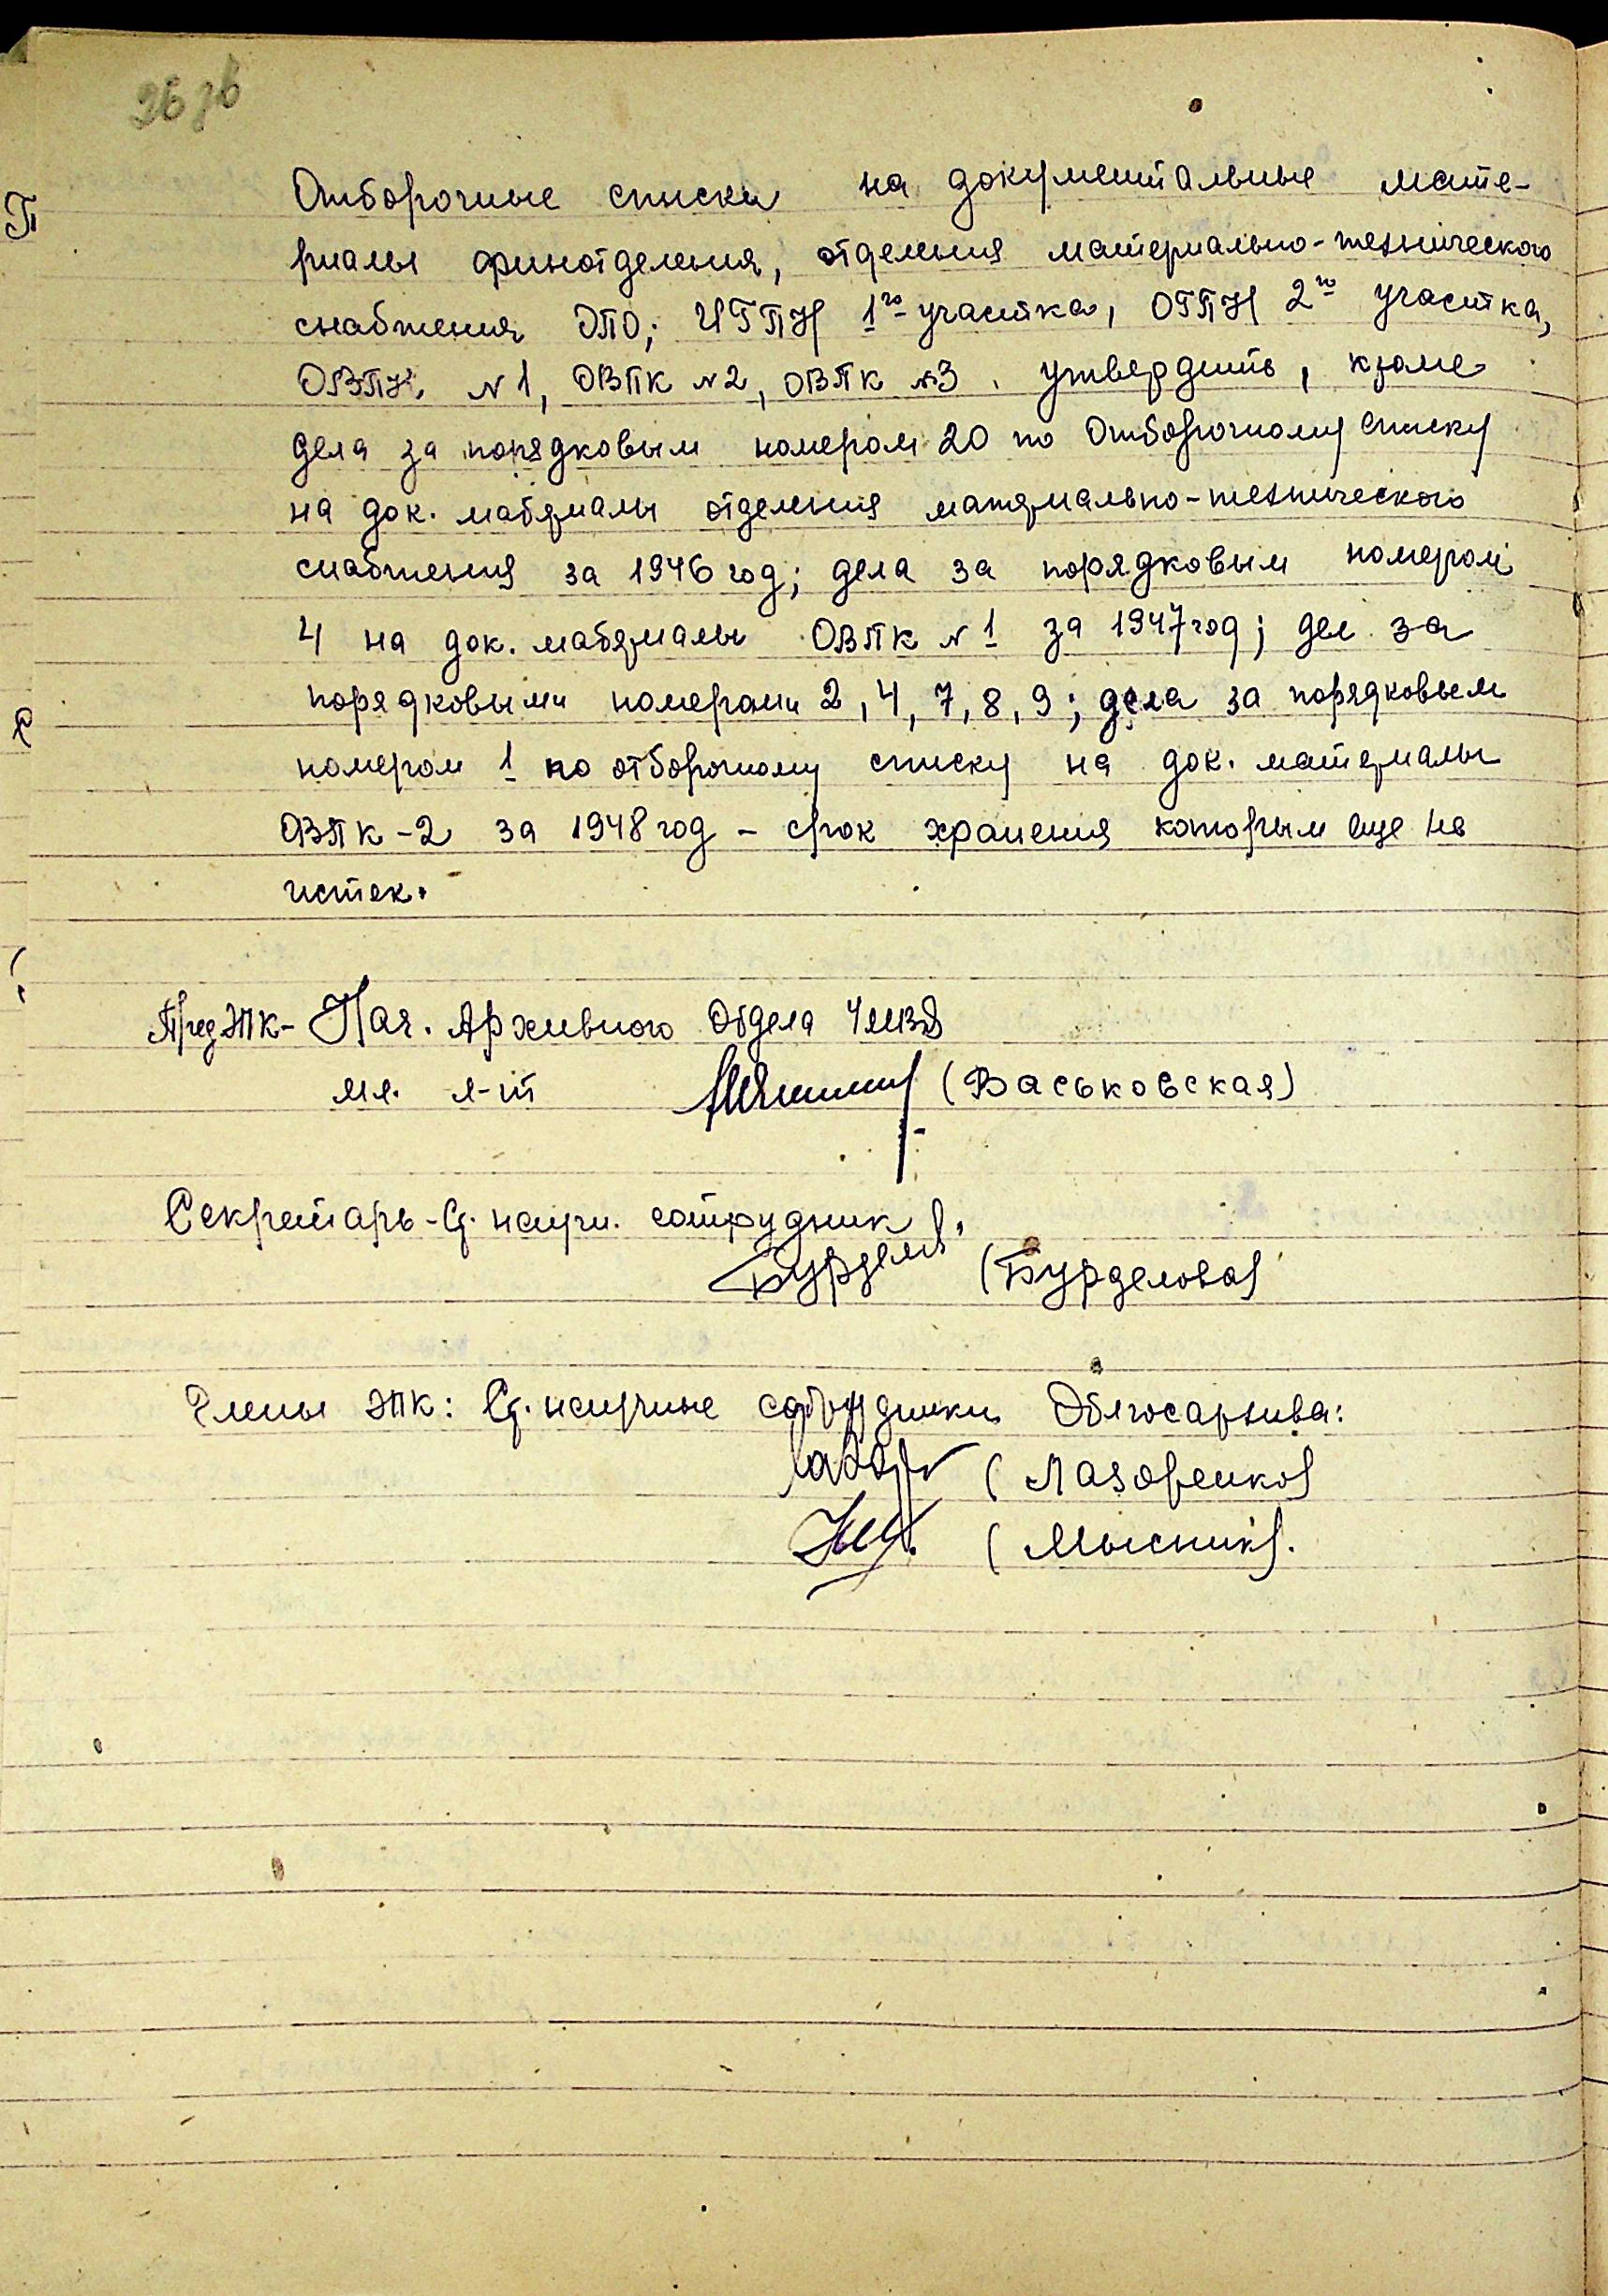 26 зв
Отборочные списки на документальные мате-
риалы финотделения, отделения материально-технического
снабжения ОПО; ИГПН 1го участка, ОГПН 2го участка,
ОВПК N1, ОВПК N2, ОВПК N3. утвердить, кроме
дела за порядковым номером 20 по Отборочному списку
на док. матермалы отделения матермально-технического
снабжения за 1946 год; дела за порядковым номером
4 на док. матермалы ОВПК N1 за 1947 год; дел за
порядковыми номерами 2, 4, 7, 8, 9; дела за порядковым
номером 1 по отборочному списку на док. матермалы
ОВПК-2 за 1948 год - срок хранения которым еще не
истек.
Пред ЭПК- Нач. Архивного Отдела УМВД
мл. л-т (Васьковская)
Секретарь - Ст. научн. сотрудник
(Бурделова)
Члены ЭПК: Ст. научные сотрудники Облгосархива:
(Лазоренко)
(Мысник).